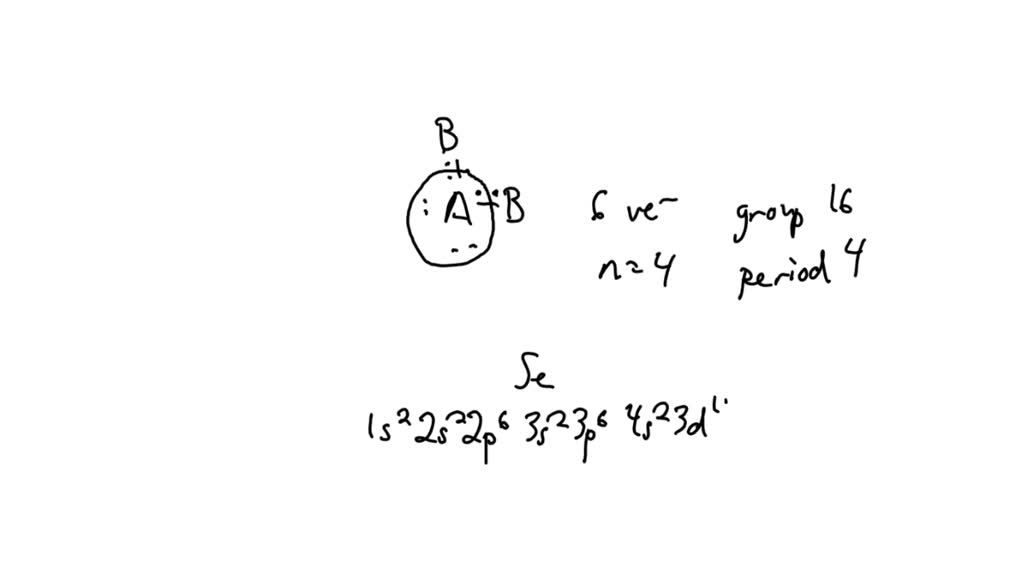 B
A B
6 ve⁻ group 16
n=4 period 4
Se
1s²2s²2p⁶ 3s²3p⁶ 4s²3d¹